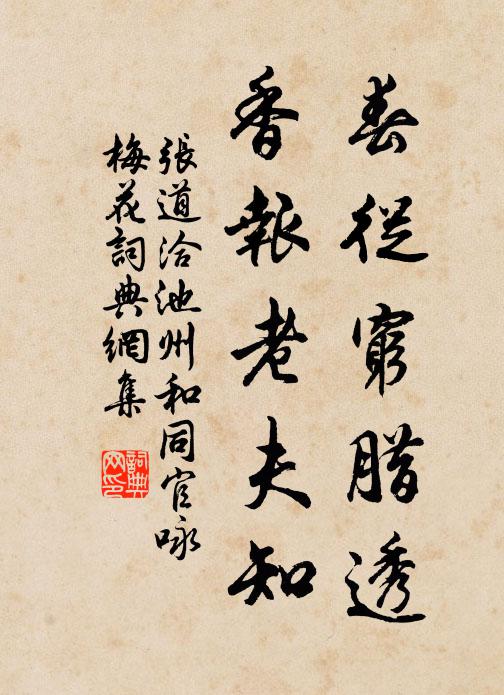 春從窮腊透
香報老夫知
張道洽池州和同官咏
梅花詞典網集
詞典
网印